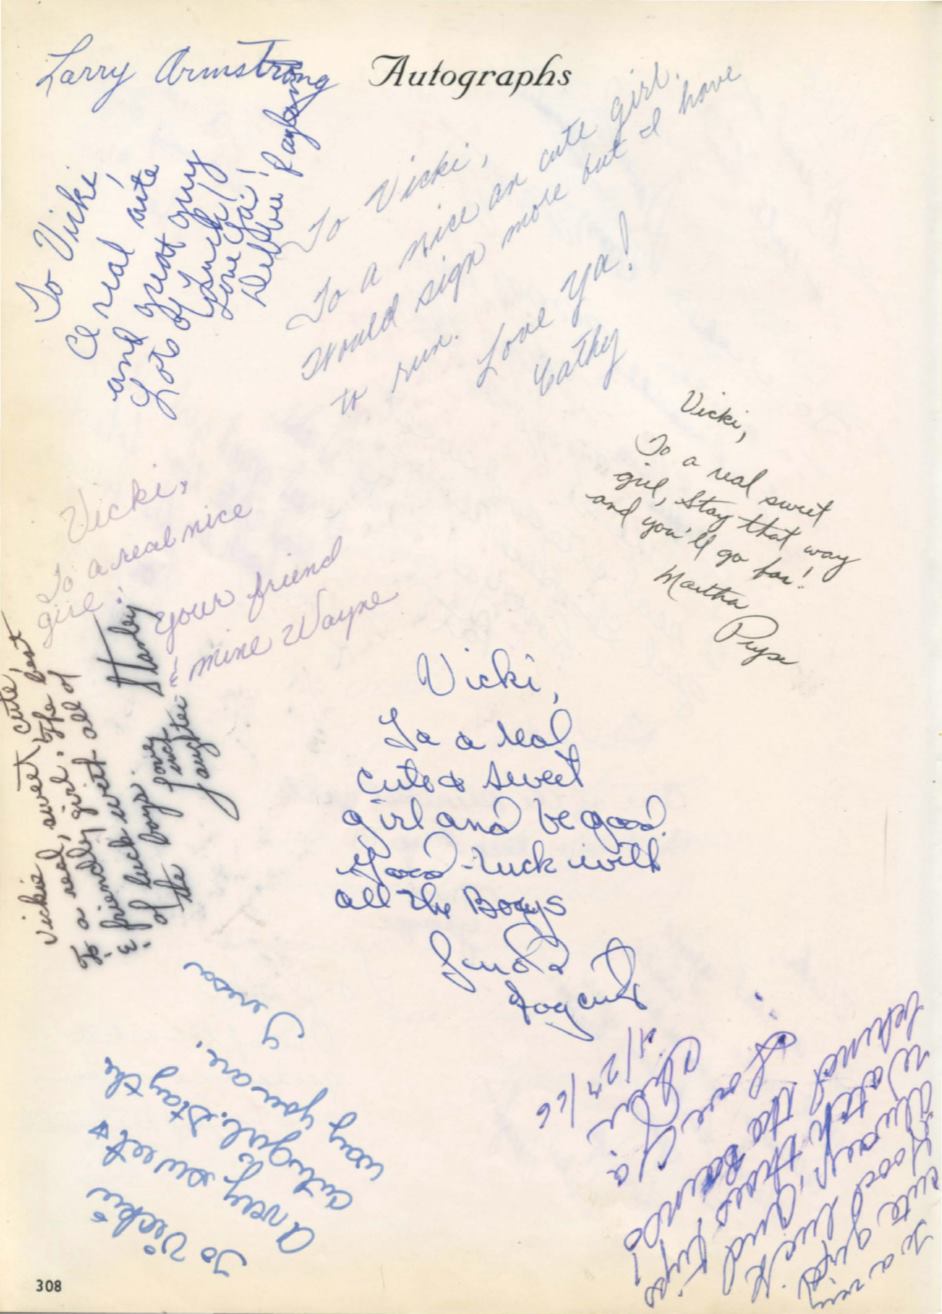 Autographs
Larry Armstrong
To Vicki,
A real cute
and great guy
Lots of Luck!
Love Ya!
Debbie
To Vicki,
To a nice an cute girl.
Would sign more but I have
to run.
Love Ya!
Cathy
Vicki,
To a real sweet
girl, Stay that way
and you'll go far!
Martha
Vicki,
To a real nice
girl.
Your friend
& mine Wayne
Vickie
To a real, sweet, cute
& friendly girl. The best
of luck with all of
the boys.
Love
Stanley
Vicki,
To a real
cute & sweet
girl and be good.
Good-luck with
all the Boys
Linda
To Vickie
A very sweet &
cute girl. Stay the
way you are.
Teresa
To a very
cute girl.
Good luck
always, and
watch those guys
behind the
Love Ya
4/27/66
308